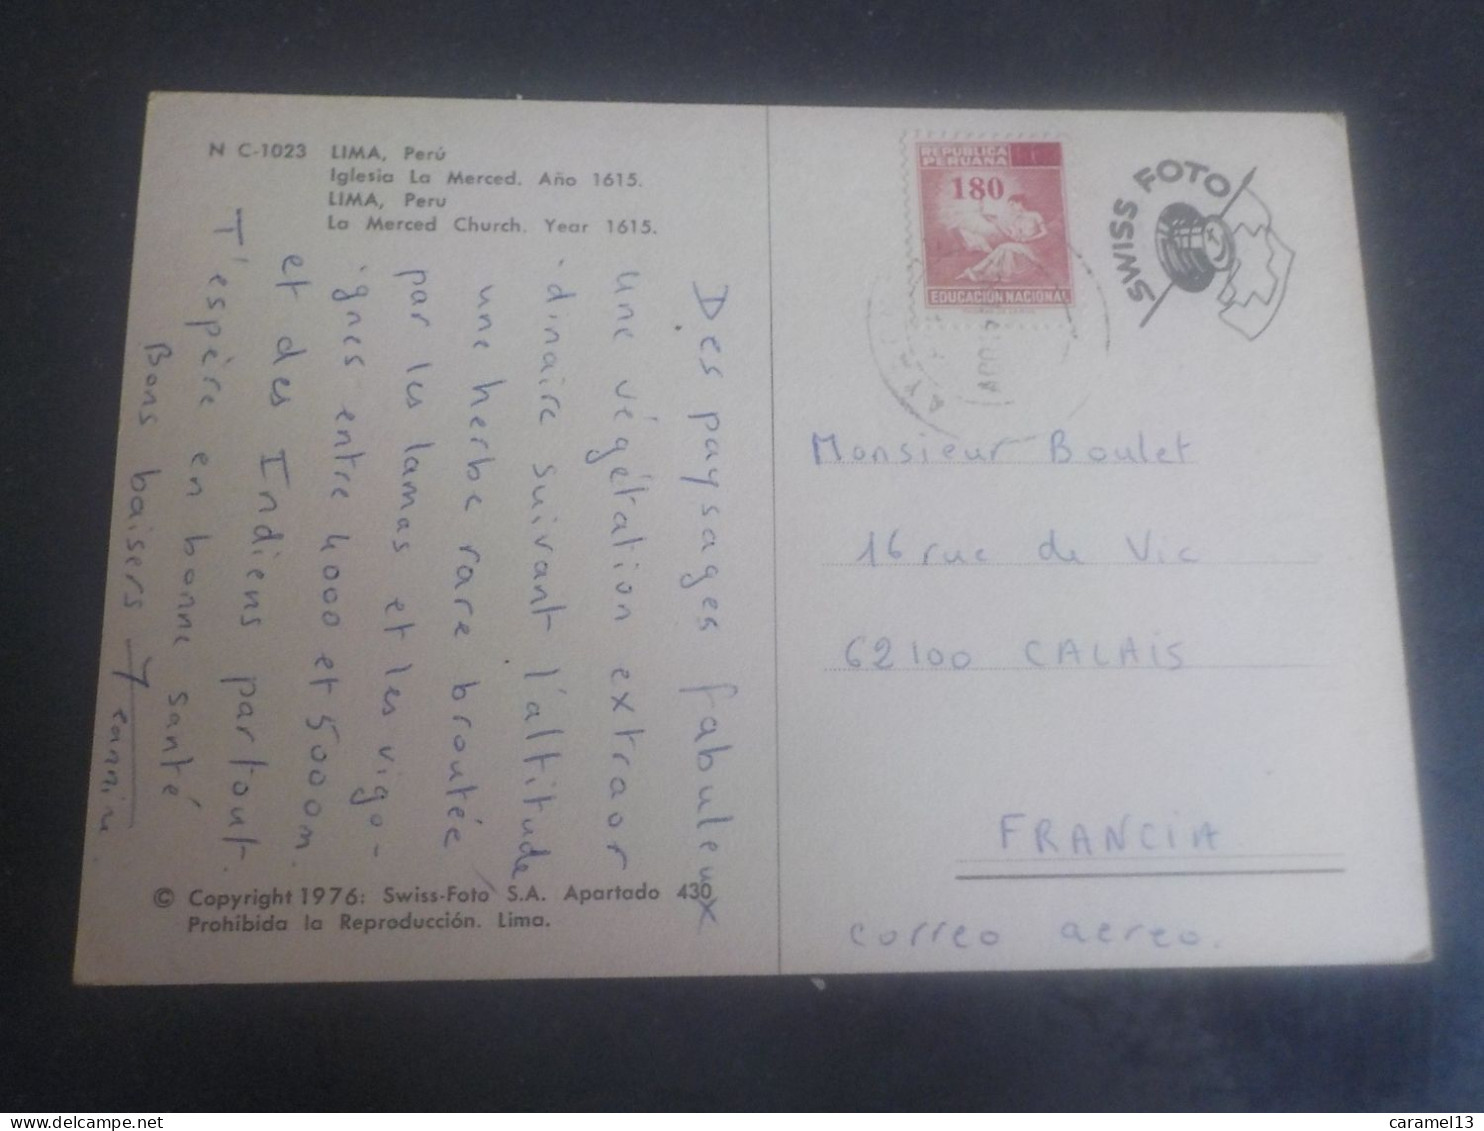 N C-1023 LIMA, Perú
Iglesia La Merced. Año 1615.
LIMA, Peru
La Merced Church. Year 1615.
Des paysages fabuleux
une végétation extraor
-dinaire suivant l'altitude
une herbe rare broutée
par les lamas et les vigo-
-gnes entre 4000 et 5000m.
et des Indiens partout.
T'espère en bonne santé
Bons baisers Jeannine.
© Copyright 1976: Swiss-Foto S.A. Apartado 430
Prohibida la Reproducción. Lima.
REPUBLICA
PERUANA
180
EDUCACIÓN NACIONAL
SWISS FOTO
Monsieur Boulet
16 rue de Vic
62100 CALAIS
FRANCIA
correo aereo.
delcampe.net
caramel13